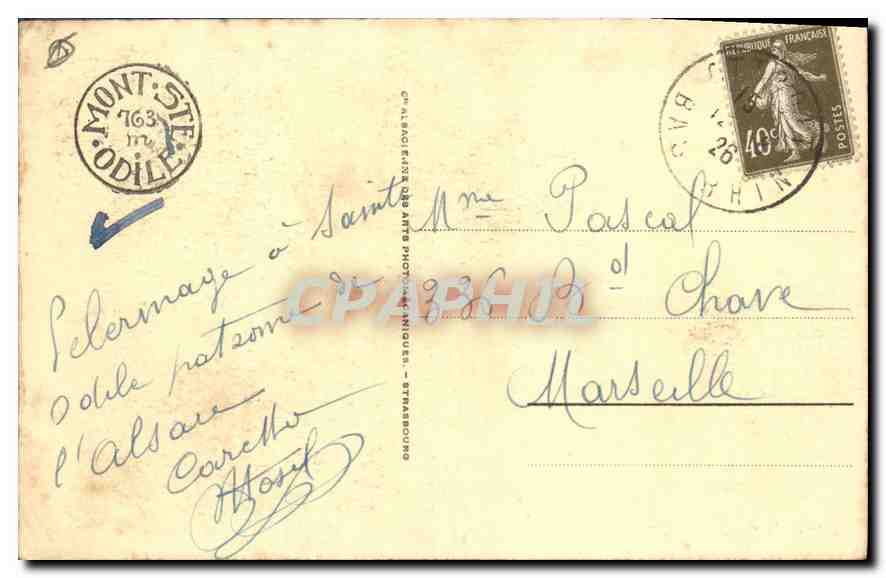 MONT STE
763
m
ODILE
Pelerinage à Sainte
Odile patronne de
l'Alsace
Cie ALSACIENNE DES ARTS PHOTOMÉCANIQUES. - STRASBOURG
REPUBLIQUE FRANÇAISE
40c
POSTES
BAS RHIN
26
Mme Pascal
336 Bd Chave
Marseille
CPAPHIL